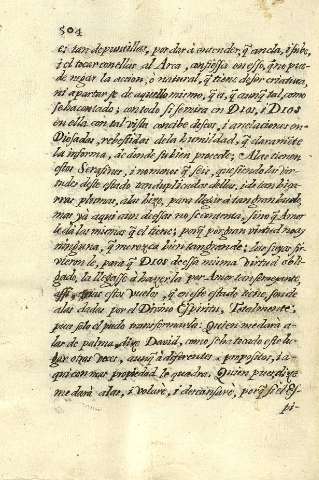 304
es tan de puntillas, por dar à entender, q̃ anela, i sube,
i el tocar con ellas al Arca, confiessa en esso, q̃ no pue-
de negar la accion, ò natural, q̃ tiene de ser criatura,
ni apartarse de aquello mismo, q̃ es, q̃ aunq̃ tal, como
se ha contado; con todo si se mira en DIOS, i DIOS
en ella con tal vista concibe deseos, i anelaciones en-
Diosadas, rebestidas de la humildad, q̃ claramẽte
la informa, de donde su bien procede; Alas tienen
estos Serafines, i no menos q̃ seis, que siendo la vir-
tud deste estado tan duplicados dellas, i de tan biza-
rras plumas, alas hizo, para llegar à tan gran buelo,
mas ya aqui aun dessas no se contenta, sino q̃ Amor
le dà las mismas q̃ el tiene; porq̃ por gran virtud no ay
ninguna, q̃ merezca bien tan grande; las suyas sir-
vieron le, para q̃ DIOS de essa misma virtud obli-
gado, la llegasse à hazerla por Amor tan semejante,
estos vuelos, q̃ en este estado tiene, son de
alas dadas por el Divino Espiritu. Totalmente:
pues solo el pudo transformarla: Quien me darà a-
las de paloma, dize David, como se ha tocado este lu-
gar otras veces, aunq̃ à diferentes propositos, i a-
qui con mas propiedad le quadra. Quien pues, dize
me darà alas, i volarè, i descansarè, porq̃ si el Es-
pi-